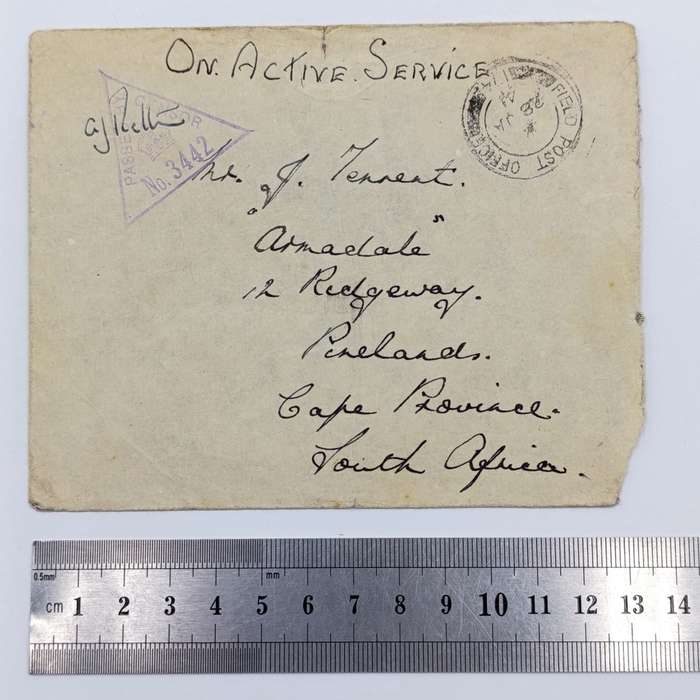 ON. ACTIVE. SERVICE
FIELD POST OFFICE
28 JA
PASSED
No. 3442
Mr. J. Tennent.
"Armadale"
12 Ridgeway.
Pinelands.
Cape Province.
South Africa.
0.5mm mm
cm 1 2 3 4 5 6 7 8 9 10 11 12 13 14